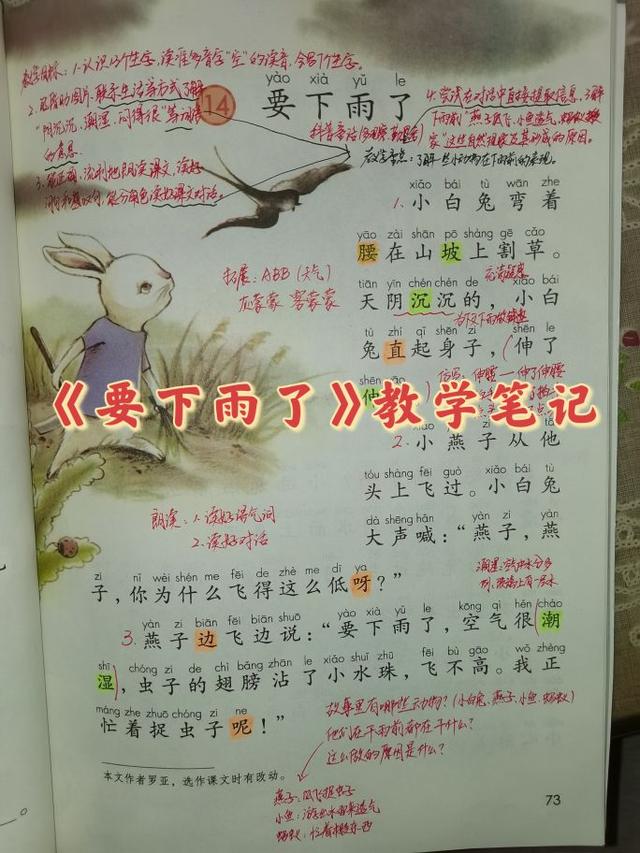 教学目标：1.认识12个生字，读准多音字"空"的读音，会写7个生字。
2.借助图片，联系生活等方式了解
"阴沉沉、潮湿、闷得很"等词语
的意思
3.能正确、流利地朗读课文，读好
问句和感叹句，能分角色读好课文对话。
4.尝试在对话中直接提取信息，了解
下雨前"燕子低飞、小鱼透气、蚂蚁搬
家"这些自然现象及其形成的原因。
教学重点：了解一些小动物在下雨前的表现。
yào xià yǔ le
14 要下雨了
xiǎo bái tù wān zhe
1. 小白兔弯着
yāo zài shān pō shàng gē cǎo
腰在山坡上割草。
拓展：ABB（天气）
灰蒙蒙 雾蒙蒙
tiān yīn chén chén de xiǎo bái
天阴沉沉的，小白
为下文下雨做铺垫
tù zhí qǐ shēn zi shēn le
兔直起身子，伸了
shēn yāo
伸
仿写：伸腰—伸了伸腰
《要下雨了》教学笔记
2. 小燕子从他
tóu shàng fēi guò xiǎo bái tù
头上飞过。小白兔
朗读：1.读好语气词
2.读好对话
dà shēng hǎn yàn zi yàn
大声喊："燕子，燕
zi nǐ wèi shén me fēi de zhè me dī ya
子，你为什么飞得这么低呀？"
潮湿：空气中水分多
yàn zi biān fēi biān shuō yào xià yǔ le kōng qì hěn cháo
3. 燕子边飞边说："要下雨了，空气很潮
shī chóng zi de chì bǎng zhān le xiǎo shuǐ zhū fēi bù gāo wǒ zhèng
湿，虫子的翅膀沾了小水珠，飞不高。我正
máng zhe zhuō chóng zi ne
忙着捉虫子呢！"
故事里有哪些动物？（小白兔、燕子、小鱼、蚂蚁）
他们在下雨前都在干什么？
这么做的原因是什么？
本文作者罗亚，选作课文时有改动。
燕子：低飞捉虫子
小鱼：游出水面来透气
蚂蚁：忙着搬东西
73